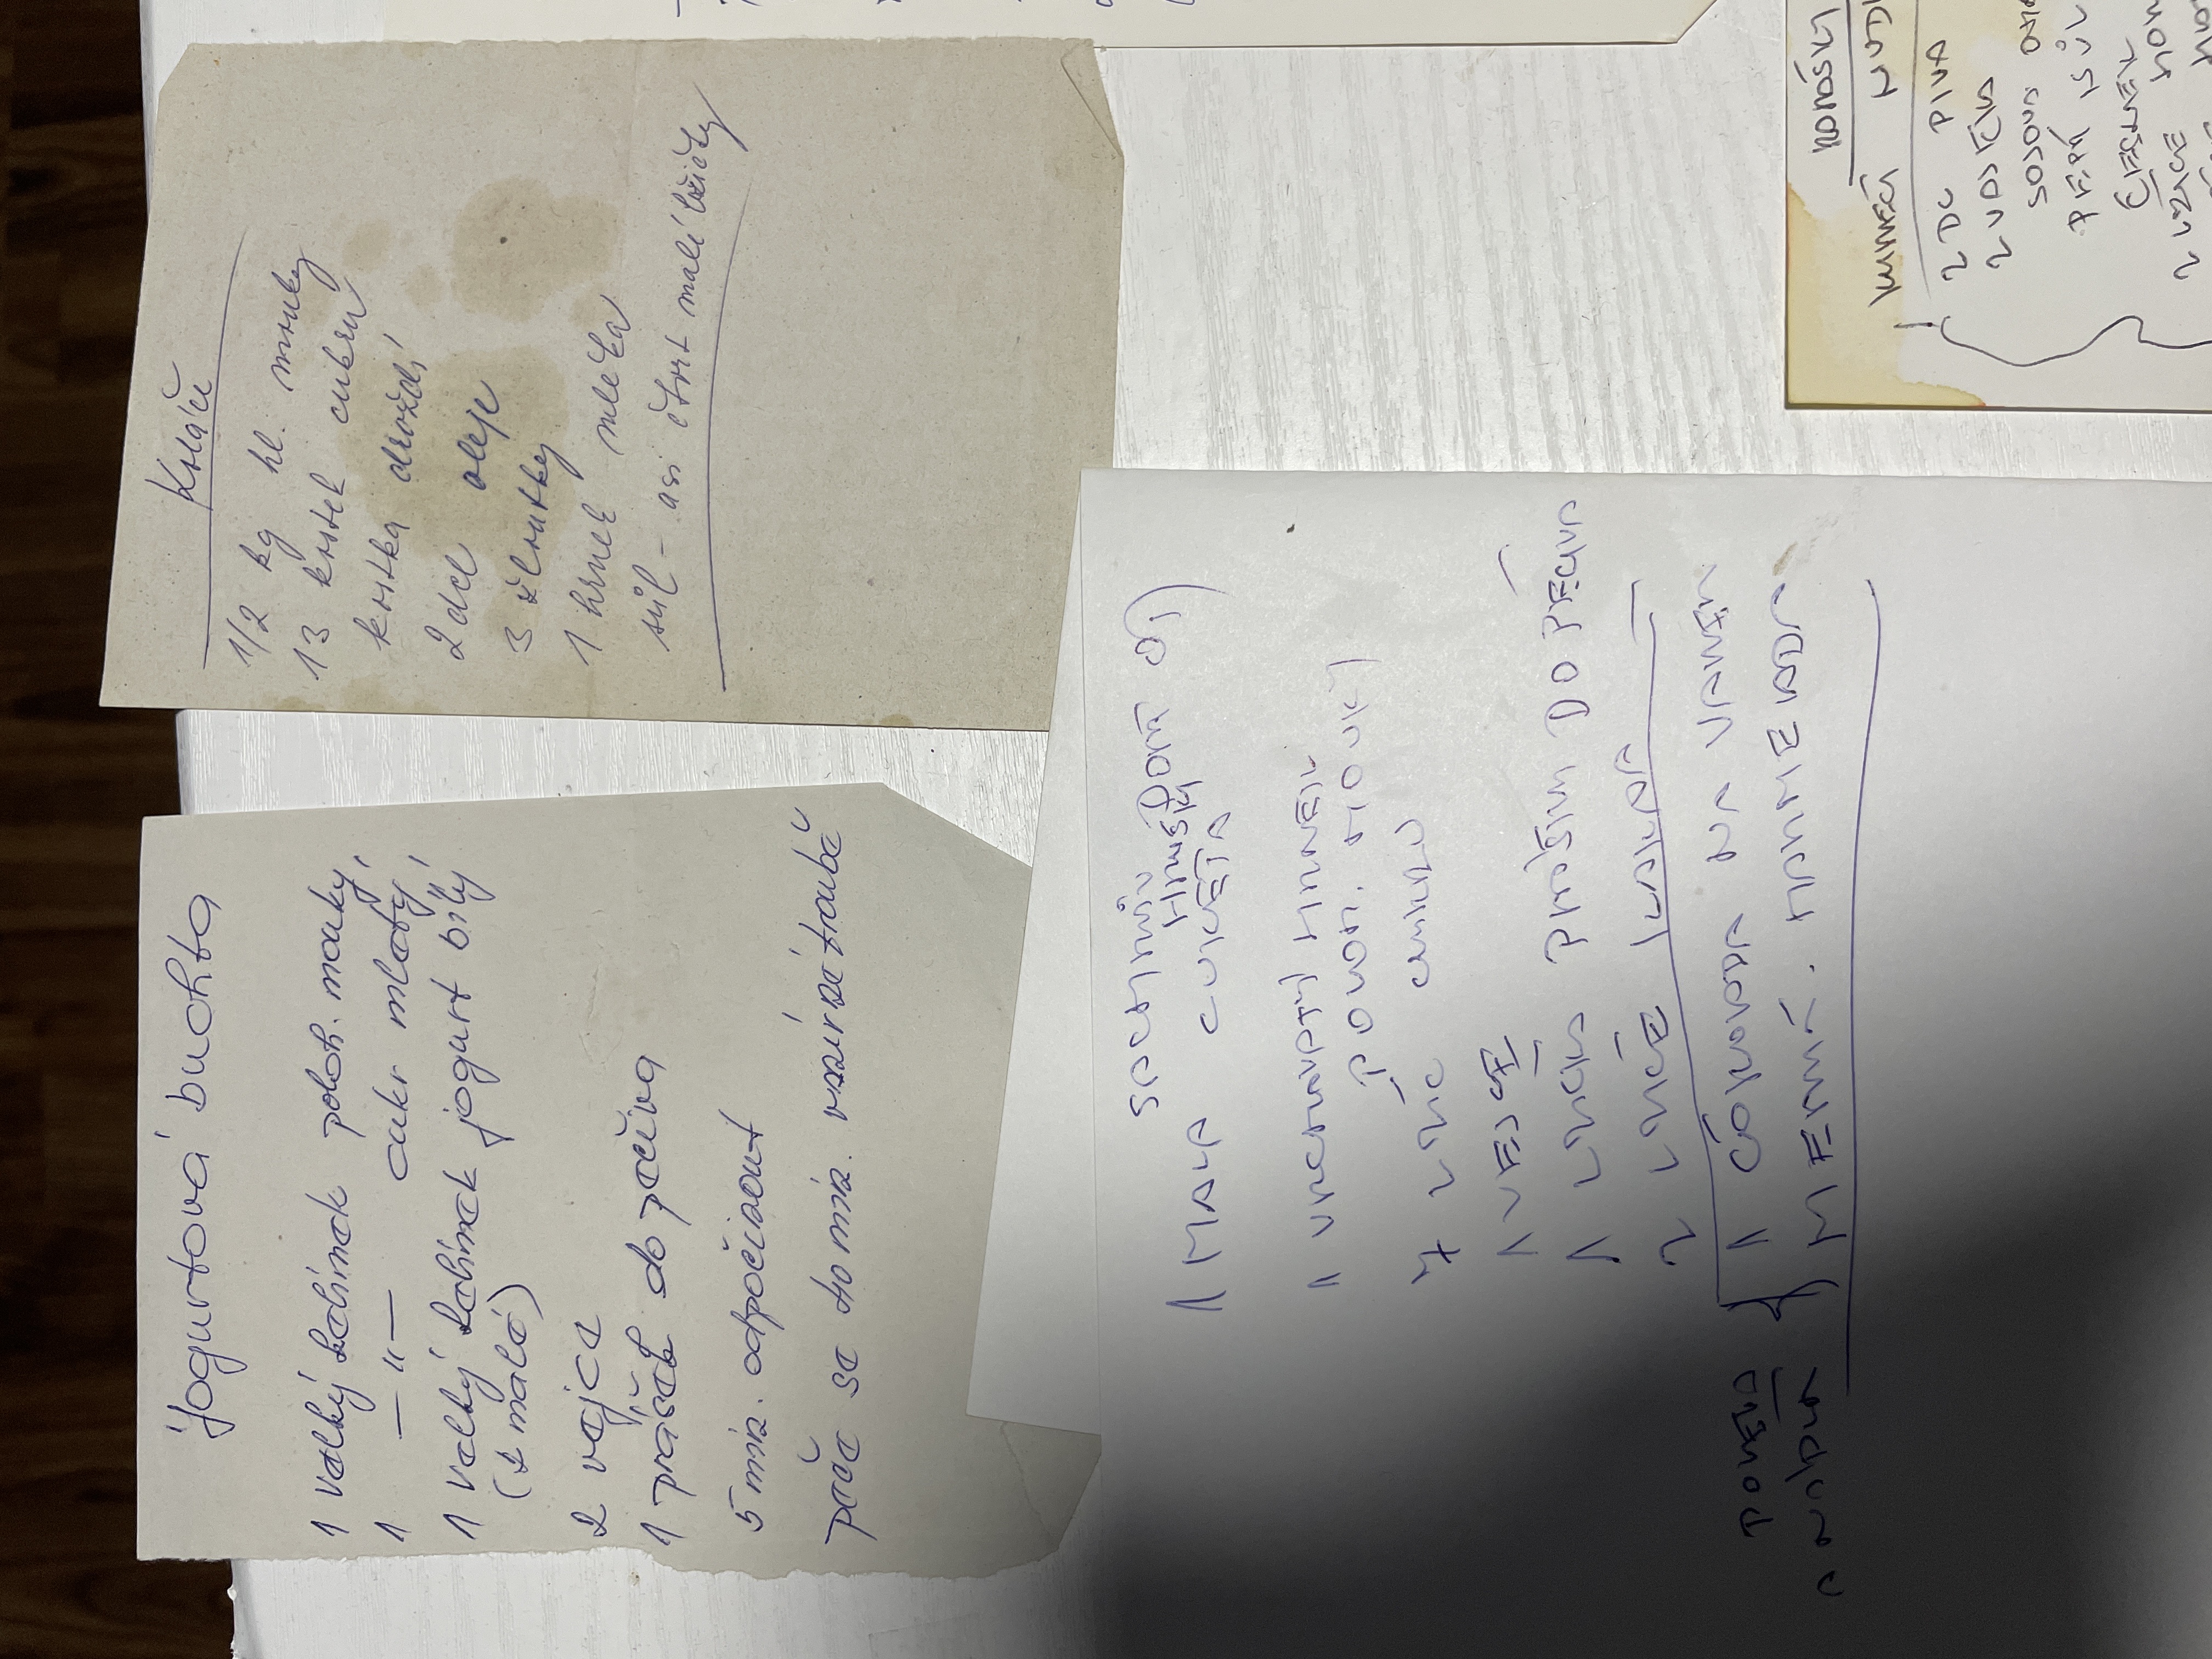 Jogurtová buchta
1 velký kelímek poloh. mouky,
1 —"— cukr mletý,
1 velký kelímek jogurt bílý
(2 malé)
2 vejce
1 prášek do pečiva
5 min. odpočinout
peče se 40 min. v mírné troubě
Koláče
1/2 kg hl. mouky
13 kostek cukru
kostka droždí
2 dcl oleje
3 žloutky
1 hrnek mléka
sůl - asi čtvrt malé lžičky
SACHRŮV DORT
HRUŠKY
1 MALA CUKETA
1 VRCHOVATÝ HRNEK
POLOH. MOUKY
7 LŽÍC CUKRU
1 VEJCE
1 LŽIČKA PRÁŠKU DO PEČIVA
2 LŽÍCE KAKAA
POLEVA
A NÁPLŇ
1 ČOKOLADA NA VAŘEN
MERUŇ. MARMELADA
KUŘECÍ NUDL
2 DC PIVA
2 VAJÍČKA
SOJOVA OMÁ
PEPŘ, SŮL
ČESNEK
2 LŽÍCE